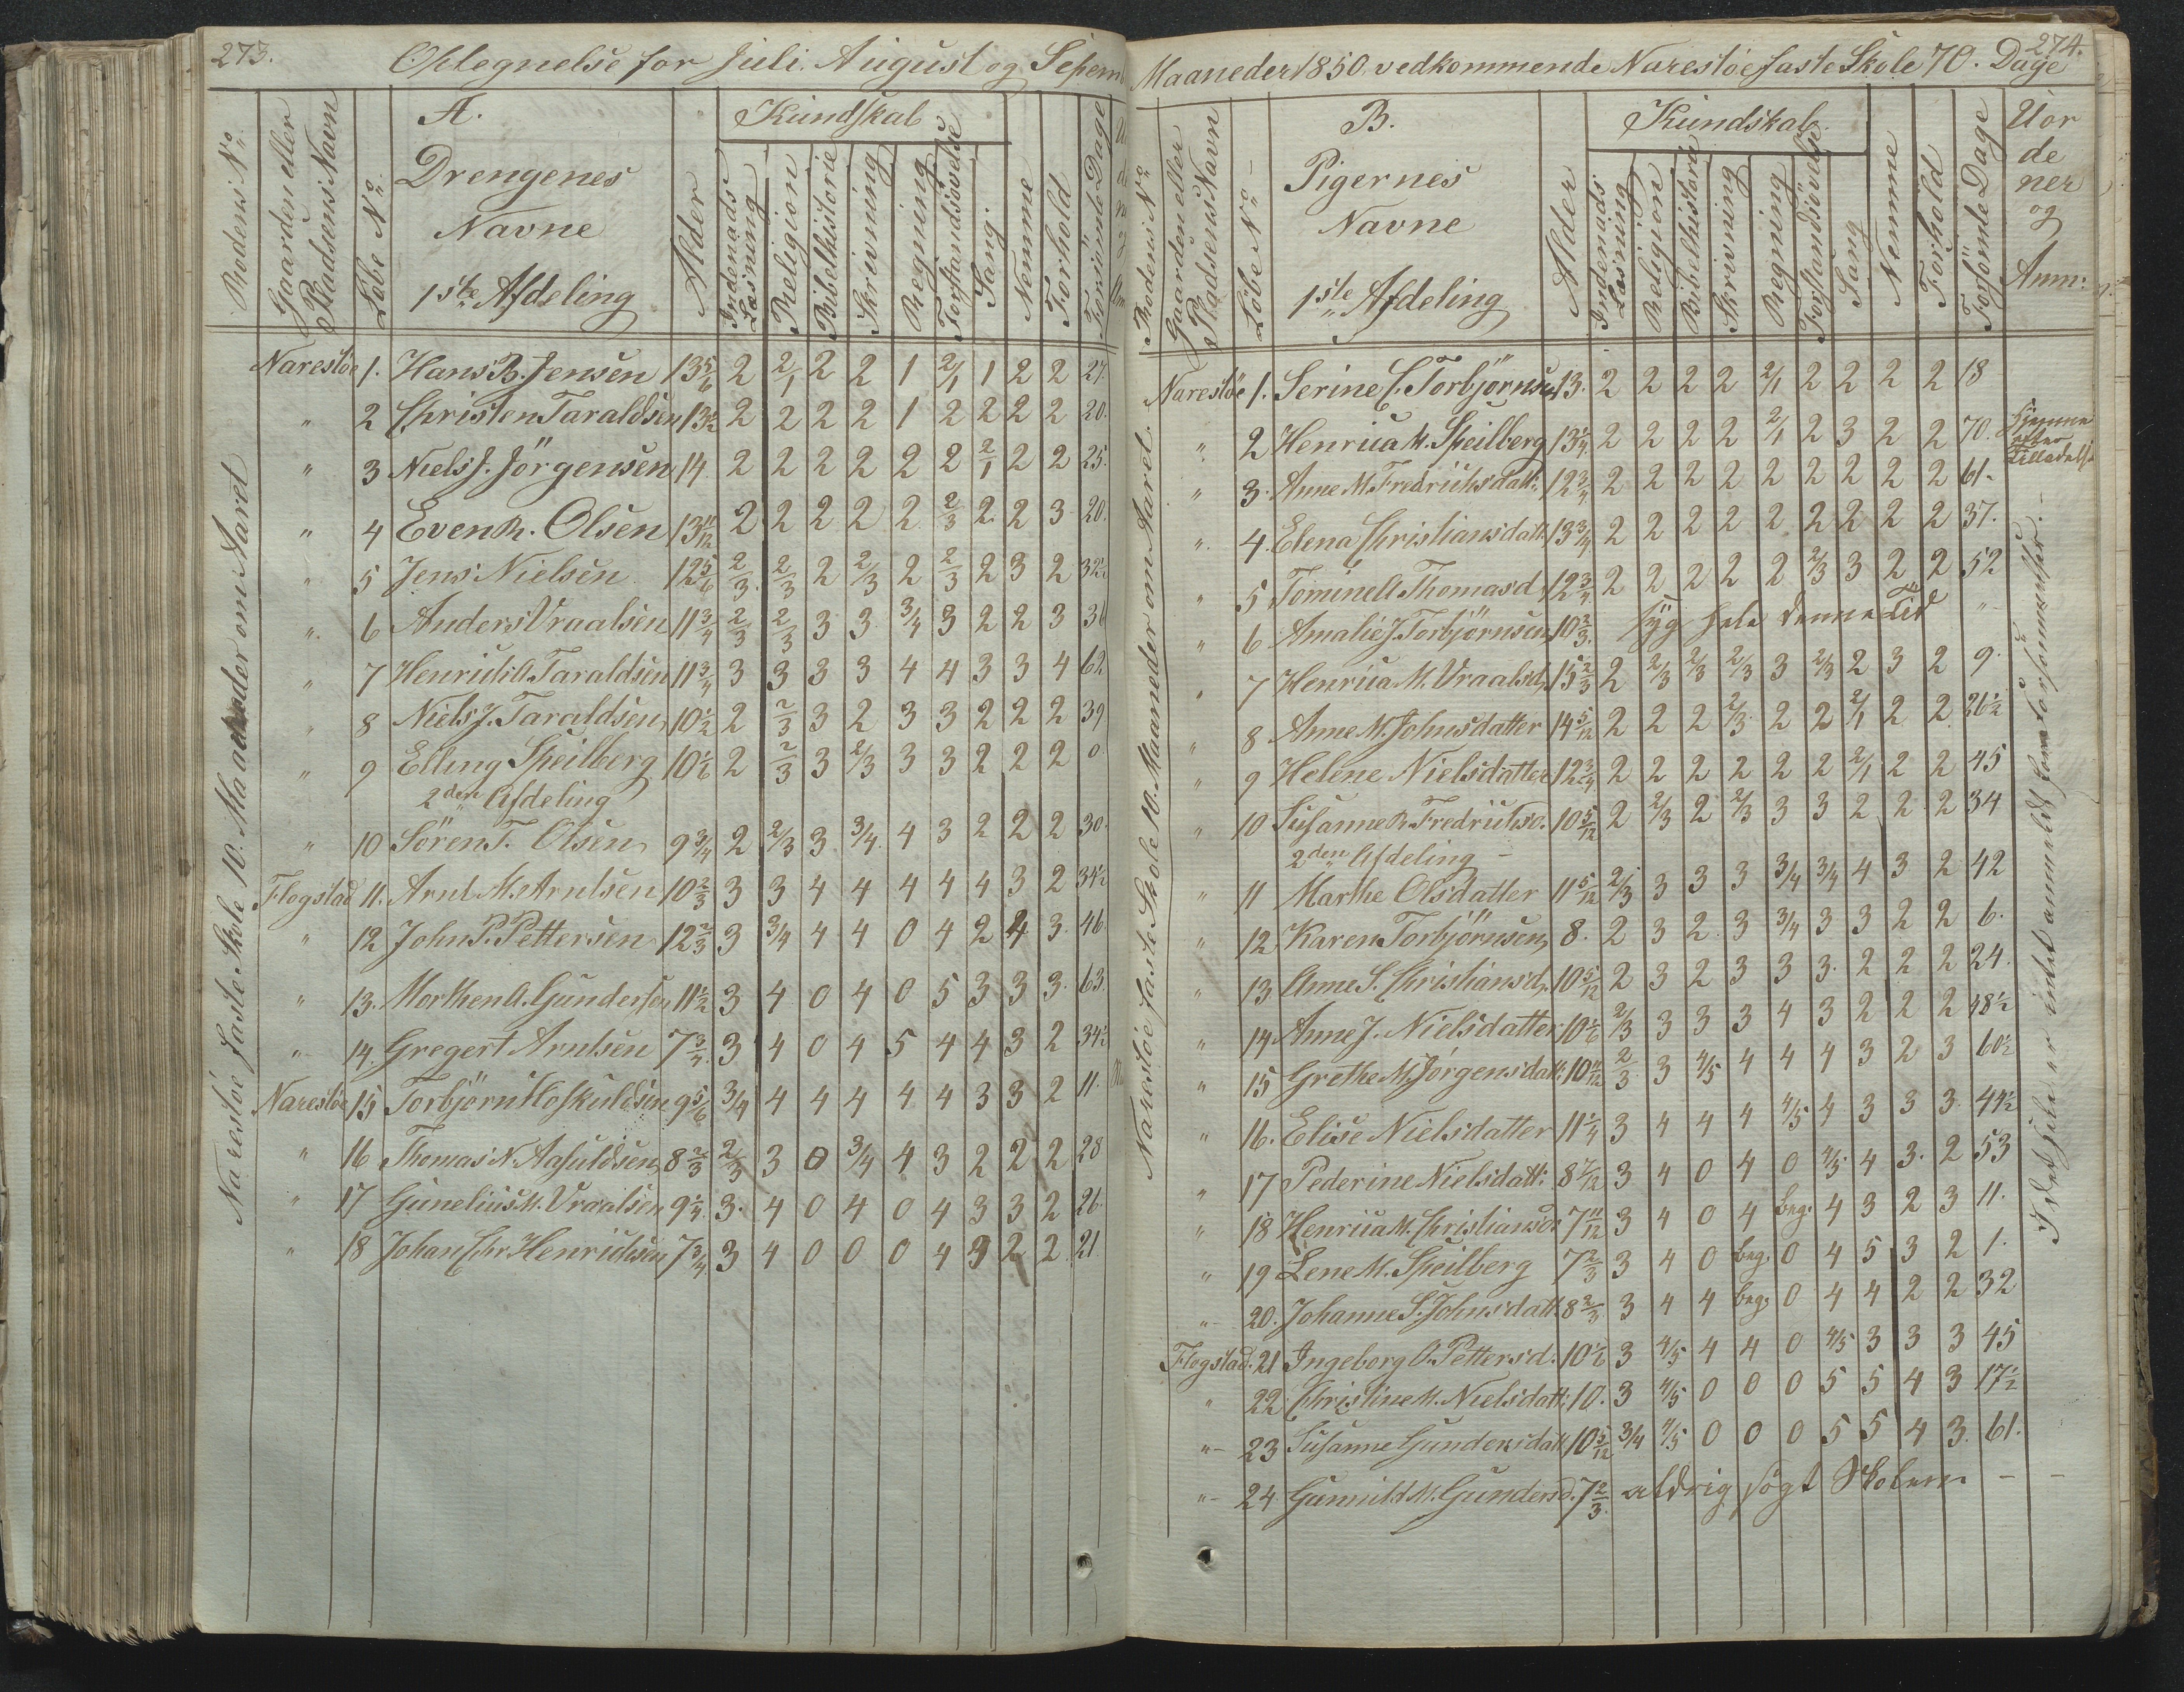 273.
Optegnelse for Juli. August og Septem
Rodens No.
Gaarden eller Pladsens Navn
Löbe No.
A.
Drengenes
Navne
1ste Afdeling
Alder
Kundskab
Indenads Læsning
Religion
Bibelhistorie
Skrivning
Regning
Forstandsövelse
Sang
Nemme
Forhold
Forsömte Dage
Narestöe faste Skole 10. Maaneder om Aaret
Narestöe 1. Hans B. Jensen 13 5/6 2 2/1 2 2 1 2/1 1 2 2 27.
" 2 Christen Taraldsen 13 1/2 2 2 2 2 1 2 2 2 2 20.
" 3 Niels J. Jörgensen 14 2 2 2 2 2 2 2/1 2 2 25.
" 4 Even R. Olsen 13 11/12 2 2 2 2 2 2/3 2 2 3 20.
" 5 Jens Nielsen 12 5/6 2/3 2/3 2 2/3 2 2/3 2 3 2 32 1/2
" 6 Anders Vraalsen 11 3/4 2/3 2/3 3 3 3/4 3 2 2 3 36
" 7 Henrich A. Taraldsen 11 3/4 3 3 3 3 4 4 3 3 4 62
" 8 Niels J. Taraldsen 10 1/2 2 2/3 3 2 3 3 2 2 2 39
" 9 Elling Speilberg 10 1/6 2 2/3 3 2/3 3 3 2 2 2 0
2den Afdeling
" 10 Sören T. Olsen 9 3/4 2 2/3 3 3/4 4 3 2 2 2 30.
Flogstad 11. Arnt M. Arntsen 10 2/3 3 3 4 4 4 4 4 3 2 34 1/2
" 12 John P. Pettersen 12 2/3 3 3/4 4 4 0 4 2 4 3. 46.
" 13. Morthen A. Gundersen 11 1/2 3 4 0 4 0 5 3 3 3. 63.
" 14. Gregert Arntsen 7 3/4 3 4 0 4 5 4 4 3 2 34 1/2
Narestöe 15 Torbjörn Hoskuldsen 9 5/6 3/4 4 4 4 4 4 3 3 2 11.
" 16 Thomas N. Aasuldsen 8 2/3 2/3 3 0 3/4 4 3 2 2 2 28
" 17 Gunelius M. Vraalsen 9 1/4 3. 4 0 4 0 4 3 3 2 26.
" 18 Johan Chr. Henrichsen 7 3/4 3 4 0 0 0 4 3 2 2 21
274.
Maaneder 1850. vedkommende Narestöe faste Skole 70. Dage
Rodens No.
Gaarden eller Pladsens Navn
Löbe No.
B.
Pigernes
Navne
1ste Afdeling
Alder
Kundskab.
Indenads Læsning
Religion
Bibelhistorie
Skrivning
Regning
Forstandsövelse
Sang
Nemme
Forhold
Forsömte Dage
Uor
de
ner
og
Anm:
Narestöe faste Skole 10. Maaneder om Aaret.
Narestöe 1. Serine C. Torbjörnsen 13. 2 2 2 2 2/1 2 2 2 2 18
" 2 Henrica M. Speilberg 13 1/4 2 2 2 2 2/1 2 3 2 2 70. hjemme efter Tilladelse
" 3. Anne M. Fredrichsdatt: 12 3/4 2 2 2 2 2 2 2 2 2 61.
" 4. Elena Christiansdatt. 13 3/4 2 2 2 2 2 2 2 2 2 37.
" 5 Tominell Thomasd. 12 3/4 2 2 2 2 2 2/3 3 2 2 52
" 6 Amalie J. Torbjörnsen 10 2/3 syg hele denne Tid "
" 7 Henrica M. Vraalsd. 15 2/3 2 2/3 2/3 2/3 3 2/3 2 3 2 9.
" 8 Anne M. Johnsdatter 14 5/12 2 2 2 2/3 2 2 2/1 2 2 26 1/2
" 9 Helene Nielsdatter 12 3/4 2 2 2 2 2 2 2/1 2 2 45
" 10 Susanne R. Fredrichsd. 10 5/12 2 2/3 2 2/3 3 3 2 2 2 34
2den Afdeling
" 11 Marthe Olsdatter 11 5/12 2/3 3 3 3 3/4 3/4 4 3 2 42
" 12 Karen Torbjörnsen 8. 2 3 2 3 3/4 3 3 2 2 6.
" 13 Anne S. Christiansd. 10 5/12 2 3 2 3 3 3 2 2 2 24.
" 14 Anne J. Nielsdatter 10 1/6 2/3 3 3 3 4 3 2 2 2 48 1/2
" 15 Grethe M. Jörgensdatt: 10 11/12 2/3 3 4/5 4 4 4 3 2 3 60 1/2
" 16. Elise Nielsdatter 11 1/4 3 4 4 4 4/5 4 3 3 3 44 1/2
" 17 Pederine Nielsdatt: 8 7/12 3 4 0 4 0 4/5 4 3. 2 53
" 18 Henrica M. Christiansd. 7 11/12 3 4 0 4 beg. 4 3 2 3 11.
" 19 Lene M. Speilberg 7 2/3 3 4 0 beg. 0 4 5 3 2 1.
" 20. Johanne S. Johnsdatt. 8 2/3 3 4 4 beg. 0 4 4 2 2 32
Flogstad. 21 Ingeborg O. Pettersd. 10 1/6 3 4/5 4 4 0 4/5 3 3 3 45
" 22 Christine M. Nielsdatt: 10. 3 4/5 0 0 0 5 5 4 3 17 1/2
" 23 Susanne Gundersdatt. 10 5/12 3/4 4/5 0 0 0 5 5 4 3. 61.
" 24 Gunnild M. Gundersd. 7 2/3 aldrig sögt Skolen